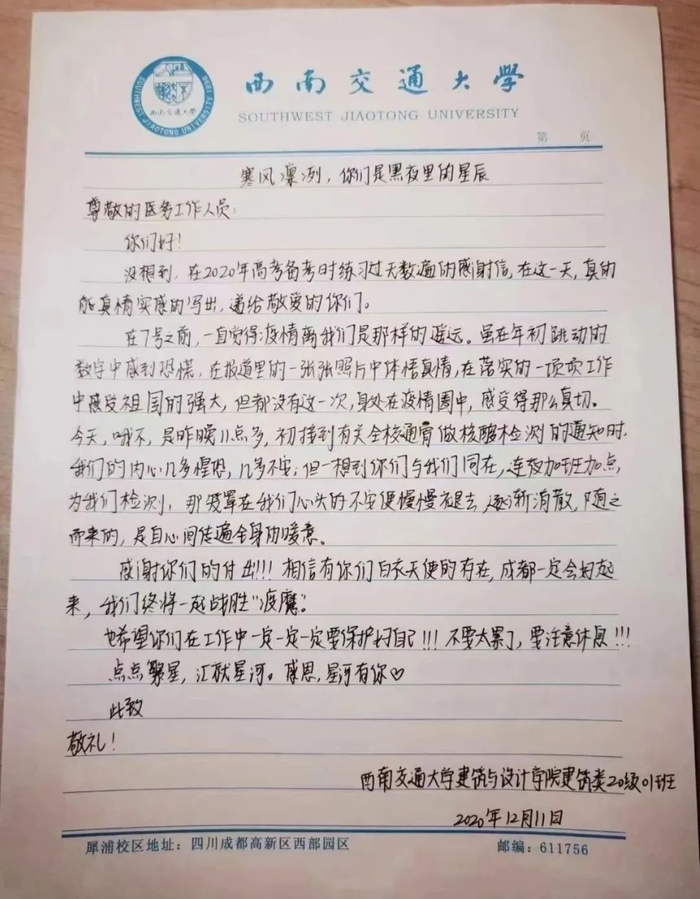 西南交通大学
SOUTHWEST JIAOTONG UNIVERSITY
西南交通大学
SOUTHWEST JIAOTONG UNIVERSITY
第 页
寒风凛冽，你们是黑夜里的星辰
尊敬的医务工作人员：
你们好！
没想到，在2020年高考备考时练习过无数遍的感谢信，在这一天，真的
能真情实感的写出，递给敬爱的你们。
在7号之前，一直觉得疫情离我们是那样的遥远。虽在年初跳动的
数字中感到恐慌，在报道里的一张张照片中体悟真情，在落实的一项项工作
中感受祖国的强大，但都没有这一次，身处在疫情圈中，感受得那么真切。
今天，哦不，是昨晚11点多，初接到有关全校通宵做核酸检测的通知时，
我们的内心几多惶恐，几多不安；但一想到你们与我们同在，连夜加班加点，
为我们检测，那笼罩在我们心头的不安便慢慢褪去，逐渐消散，随之
而来的，是自心间传遍全身的暖意。
感谢你们的付出！！！相信有你们白衣天使的存在，成都一定会好起
来，我们终将一起战胜“疫魔”。
也希望你们在工作中一定一定一定要保护好自己！！！不要太累了，要注意休息！！！
点点繁星，汇成星河。感恩，星河有你♡
此致
敬礼！
西南交通大学建筑与设计学院建筑类20级01班
2020年12月11日
犀浦校区地址：四川成都高新区西部园区 邮编：611756